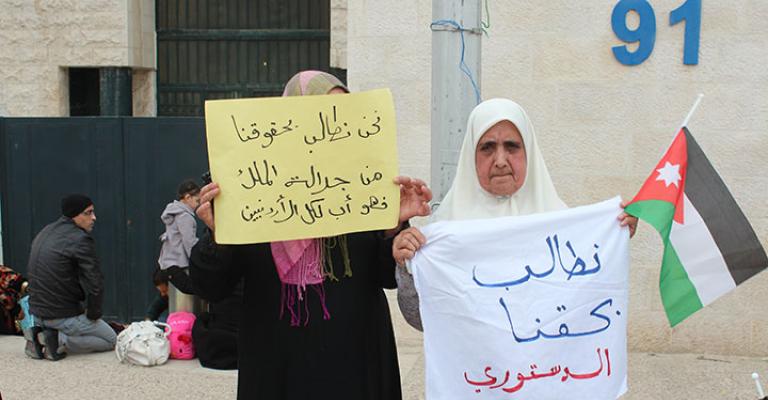 91
نحن نطالب بحقوقنا
من جلالة الملك
فهو أب لكل الأردنيين
نطالب
بحقنا
الدستوري